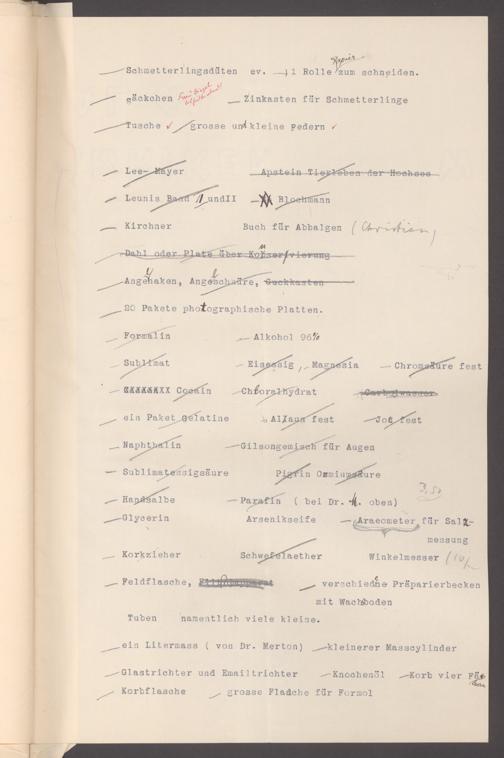 Schmetterlingsdüten ev. 1 Rolle Papier zum schneiden.
Säckchen Zinkasten für Schmetterlinge
Tusche grosse und kleine Federn
Lee- Mayer Apstein Tierleben der Hochsee
Leunis Band I undII Blochmann
Kirchner Buch für Abbalgen (Christian)
Dahl oder Plate über Konservierung
Angelhaken, Angelschnüre, Guckkasten
20 Pakete photographische Platten.
Formalin Alkohol 96%
Sublimat Eisessig, Magnesia Chromsäure fest
Cocain Chloralhydrat Carbolwasser
ein Paket Gelatine Alaun fest Jod fest
Naphthalin Gilsongemisch für Augen
Sublimatessigsäure Pigrin Osmiumsäure
Handsalbe Parafin ( bei Dr. H. oben) 3,50
Glycerin Arsenikseife Araeometer für Salz-
messung
Korkzieher Schwefelaether Winkelmesser
Feldflasche, verschiedne Präparierbecken
mit Wachboden
Tuben namentlich viele kleine.
ein Litermass ( von Dr. Merton) kleinerer Masscylinder
Glastrichter und Emailtrichter Knochenöl Korb vier
Korbflasche grosse Flasche für Formol